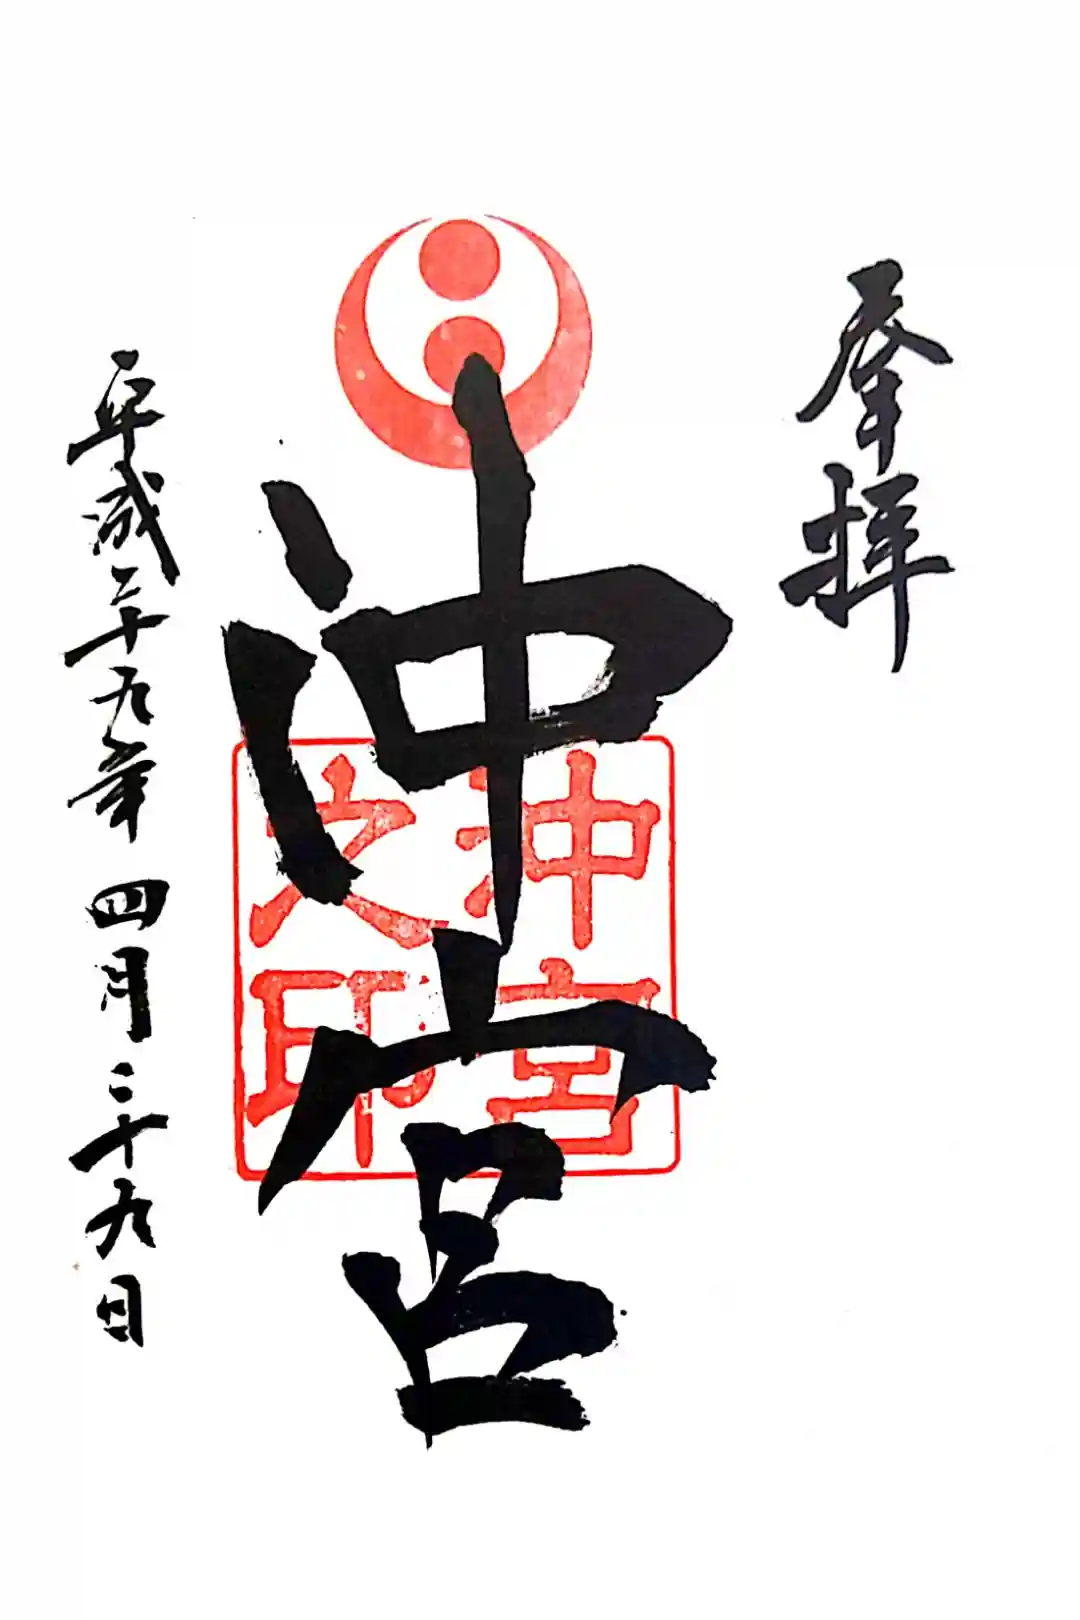 奉拝
沖宮
沖宮
之印
平成二十九年四月二十九日